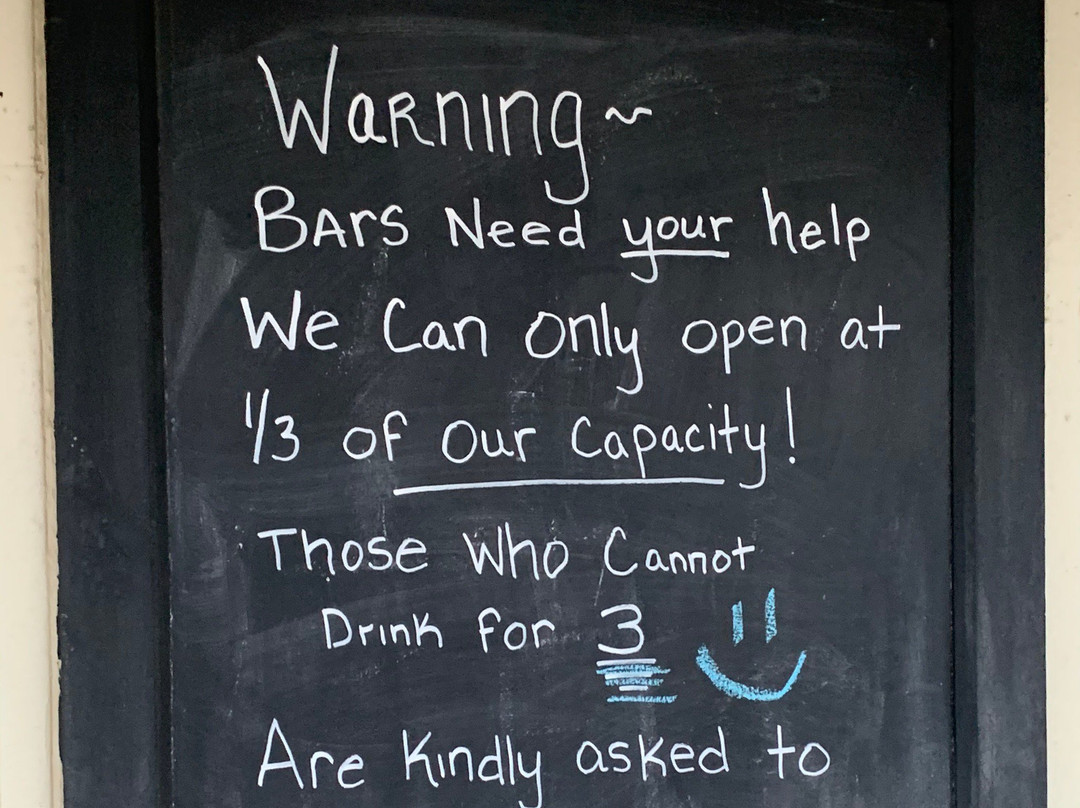 Warning~
Bars Need your help
We Can only open at
1/3 of our Capacity!
Those Who Cannot
Drink for 3
Are Kindly asked to